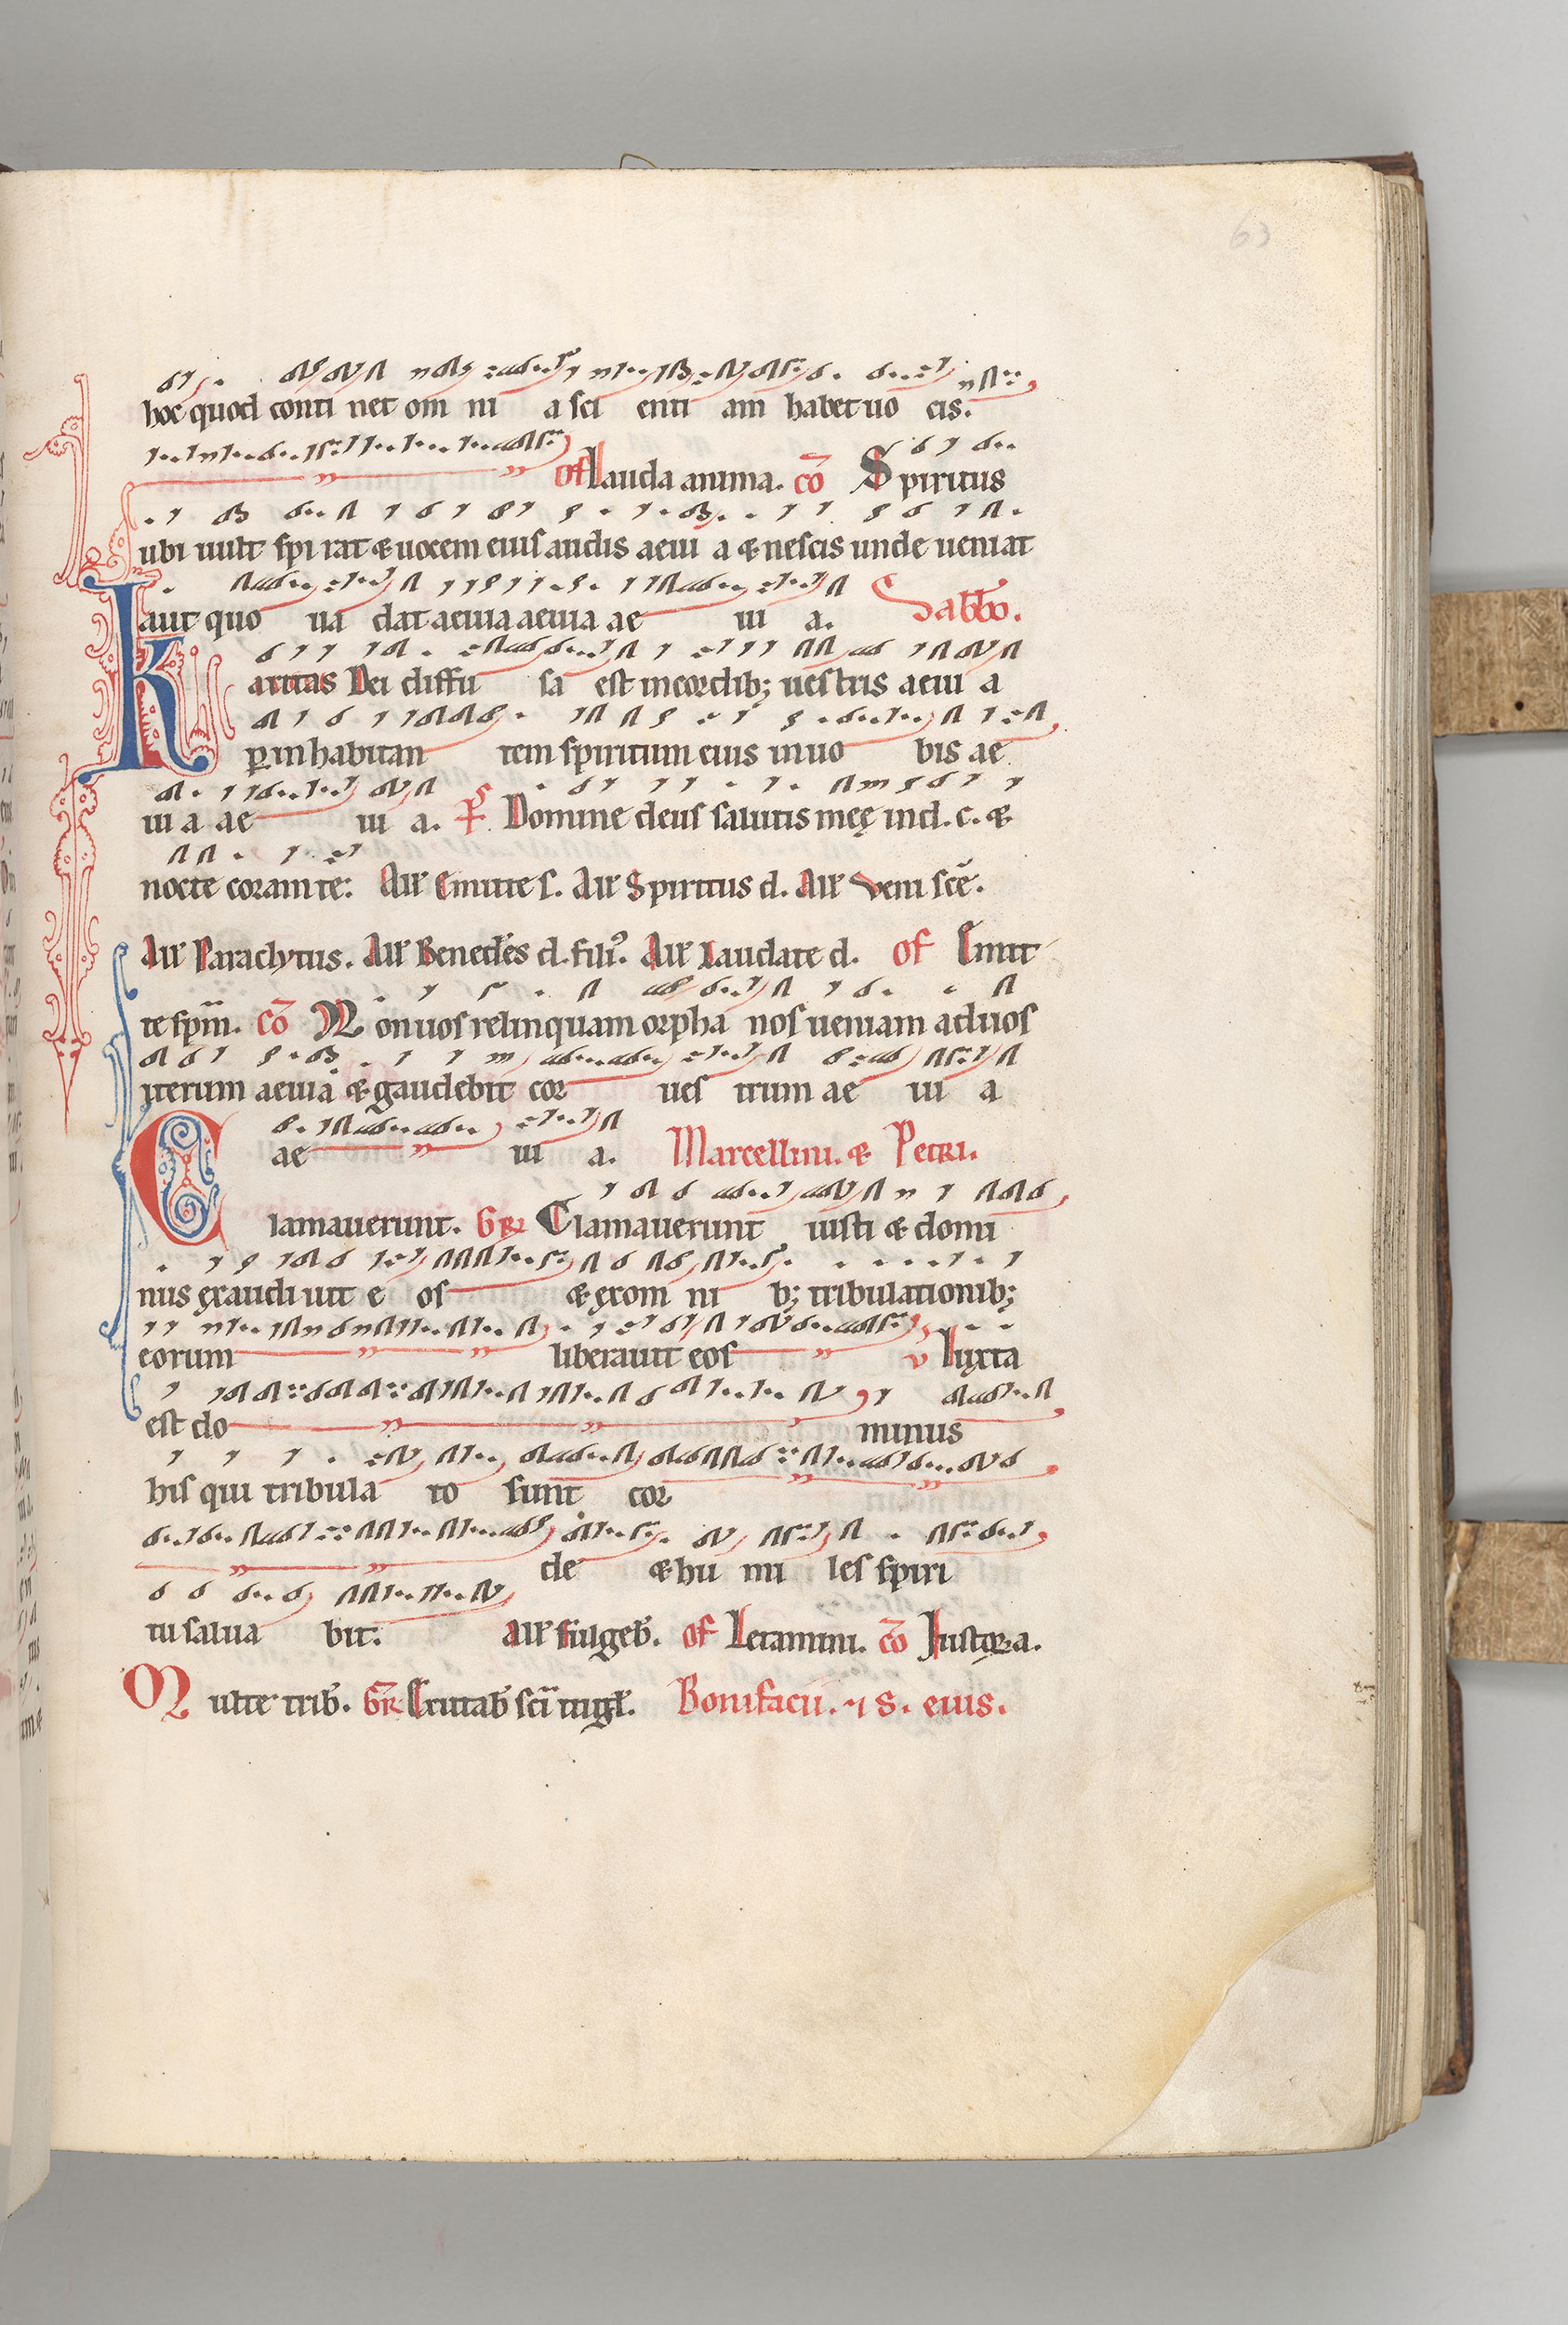 63
hoc quod conti net om ni a sci enti am habet uo cis.
Of Lauda anima. Cō Spiritus
ubi uult spi rat & uocem eius audis aeui a & nescis unde ueniat
aut quo ua dat aeuia aeuia ae ui a. Sabbō.
Karitas Dei diffu sa est in cordib; uestris aeui a
ꝑ inhabitan tem spiritum eius in uo bis ae
ui a ae ui a. Ps. Domine deus salutis meę in d. c. &
nocte coram te: Aƚƚ Emitte s. Aƚƚ Spiritus d. Aƚƚ Veni scē.
Aƚƚ Paraclytus. Aƚƚ Bened̄s d. fili⁹. Aƚƚ Laudate d. Of Emit
te spm̄. Cō Non uos relinquam orpha nos ueniam ad uos
iterum aeuia & gaudebit cor ues trum ae ui a
ae ui a. Marcellini. & Petri.
Clamauerunt. GR Clamauerunt iusti & domi
nus ęxaudi uit e os & ęx om ni b; tribulationib;
eorum liberauit eos V Iuxta
est do minus
his qui tribula to sunt cor
de & hu mi les spiri
tu salua bit. Aƚƚ Fulgeb̄. Of Letamini. Cō Iustoꝝ a.
Multe trib̄. GR Exultab̄ sci in gƚ. Bonifacii. & S. eius.